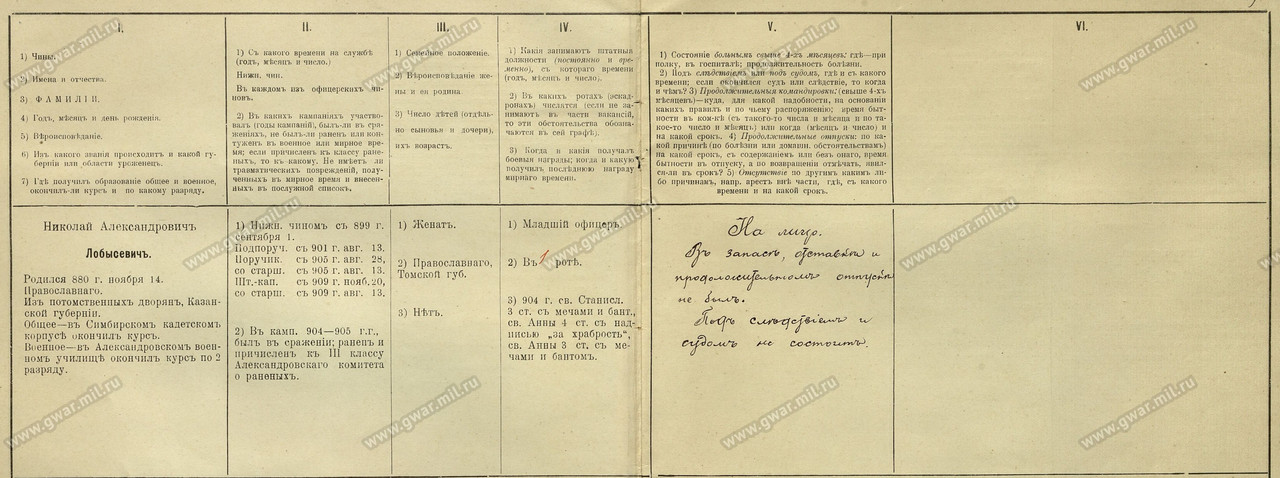 I.
1) Чины.
2) Имена и отчества.
3) ФАМИЛІИ.
4) Годъ, мѣсяцъ и день рожденія.
5) Вѣроисповѣданіе.
6) Изъ какого званія происходитъ и какой гу-
берніи или области уроженецъ.
7) Гдѣ получилъ образованіе общее и военное,
окончилъ-ли курсъ и по какому разряду.
II.
1) Съ какого времени на службѣ
(годъ, мѣсяцъ и число).
Нижн. чин.
Въ каждомъ изъ офицерскихъ чи-
новъ.
2) Въ какихъ кампаніяхъ участво-
валъ (годы кампаній), былъ-ли въ сра-
женіяхъ, не былъ-ли раненъ или кон-
туженъ въ военное или мирное вре-
мя; если причисленъ къ классу ране-
ныхъ, то къ какому. Не имѣетъ ли
травматическихъ поврежденій, полу-
ченныхъ въ мирное время и внесен-
ныхъ въ послужной списокъ.
III.
1) Семейное положеніе.
2) Вѣроисповѣданіе же-
ны и ея родина.
3) Число дѣтей (отдѣль-
но сыновья и дочери),
ихъ возрастъ.
IV.
1) Какія занимаютъ штатныя
должности (постоянно и вре-
менно), съ котораго времени
(годъ, мѣсяцъ и число).
2) Въ какихъ ротахъ (эскад-
ронахъ) числятся (если не за-
нимаютъ въ части вакансій,
то эти обстоятельства обозна-
чаются въ сей графѣ).
3) Когда и какія получалъ
боевыя награды; когда и какую
получилъ послѣднюю награду
мирнаго времени.
V.
1) Состояніе больнымъ свыше 4-хъ мѣсяцевъ: гдѣ—при
полку, въ госпиталѣ; продолжительность болѣзни.
2) Подъ слѣдствіемъ или подъ судомъ, гдѣ и съ какого
времени; если окончился судъ или слѣдствіе, то когда
и чѣмъ? 3) Продолжительныя командировки: (свыше 4-хъ
мѣсяцевъ)—куда, для какой надобности, на основаніи
какихъ правилъ и по чьему распоряженію; время быт-
ности въ ком-кѣ (съ такого-то числа и мѣсяца и по та-
кое-то число и мѣсяцъ) или когда (мѣсяцъ и число) и
на какой срокъ. 4) Продолжительные отпуски: по ка-
кой причинѣ (по болѣзни или домашн. обстоятельствамъ)
на какой срокъ, съ содержаніемъ или безъ онаго, время
бытности въ отпуску, а по возвращеніи отмѣчать, явил-
ся-ли въ срокъ? 5) Отсутствіе по другимъ какимъ ли-
бо причинамъ, напр. арестъ внѣ части, гдѣ, съ какого
времени и на какой срокъ.
VI.
Николай Александровичъ
Лобысевичъ.
Родился 880 г. ноября 14.
Православнаго.
Изъ потомственныхъ дворянъ, Казан-
ской губерніи.
Общее—въ Симбирскомъ кадетскомъ
корпусѣ окончилъ курсъ.
Военное—въ Александровскомъ воен-
номъ училищѣ окончилъ курсъ по 2
разряду.
1) Нижн. чиномъ съ 899 г.
сентября 1.
Подпоруч. съ 901 г. авг. 13,
Поручик. съ 905 г. авг. 28,
со старш. съ 905 г. авг. 13,
Шт.-кап. съ 909 г. нояб. 20,
со старш. съ 909 г. авг. 13.
2) Въ камп. 904—905 г.г.,
былъ въ сраженіи; раненъ и
причисленъ къ III классу
Александровскаго комитета
о раненыхъ.
1) Женатъ.
2) Православнаго,
Томской губ.
3) Нѣтъ.
1) Младшій офицеръ.
2) Въ 1 ротѣ.
3) 904 г. св. Станисл.
3 ст. съ мечами и бант.,
св. Анны 4 ст. съ над-
писью „за храбрость“,
св. Анны 3 ст. съ ме-
чами и бантомъ.
На лицо.
Въ запасѣ, отставкѣ и
продолжительномъ отпуску
не былъ.
Подъ слѣдствіемъ и
судомъ не состоитъ.
www.gwar.mil.ru